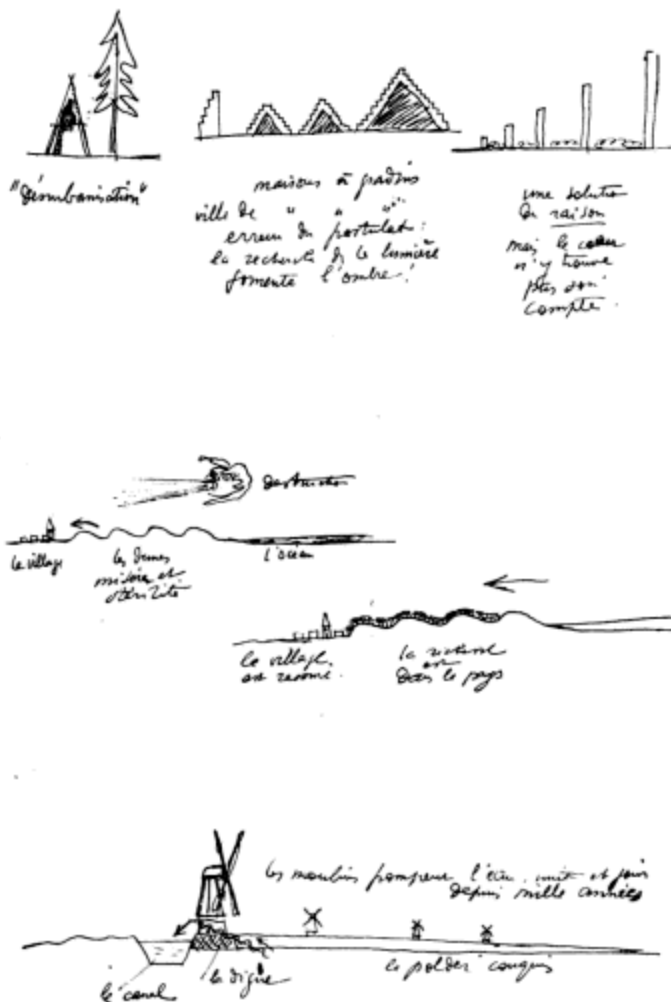 "désurbanisation"
maisons à gradins
ville de " " "
erreur du postulat :
la recherche de la lumière
fomente l'ombre !
une solution
de raison
mais le cœur
n'y trouve
pas son
compte.
destruction
le village
les dunes
misère et
stérilité
l'océan
le village
est
la richesse
est
dans le pays
les moulins pompent l'eau, nuit et jour
depuis mille années
le canal
la digue
le polder conquis